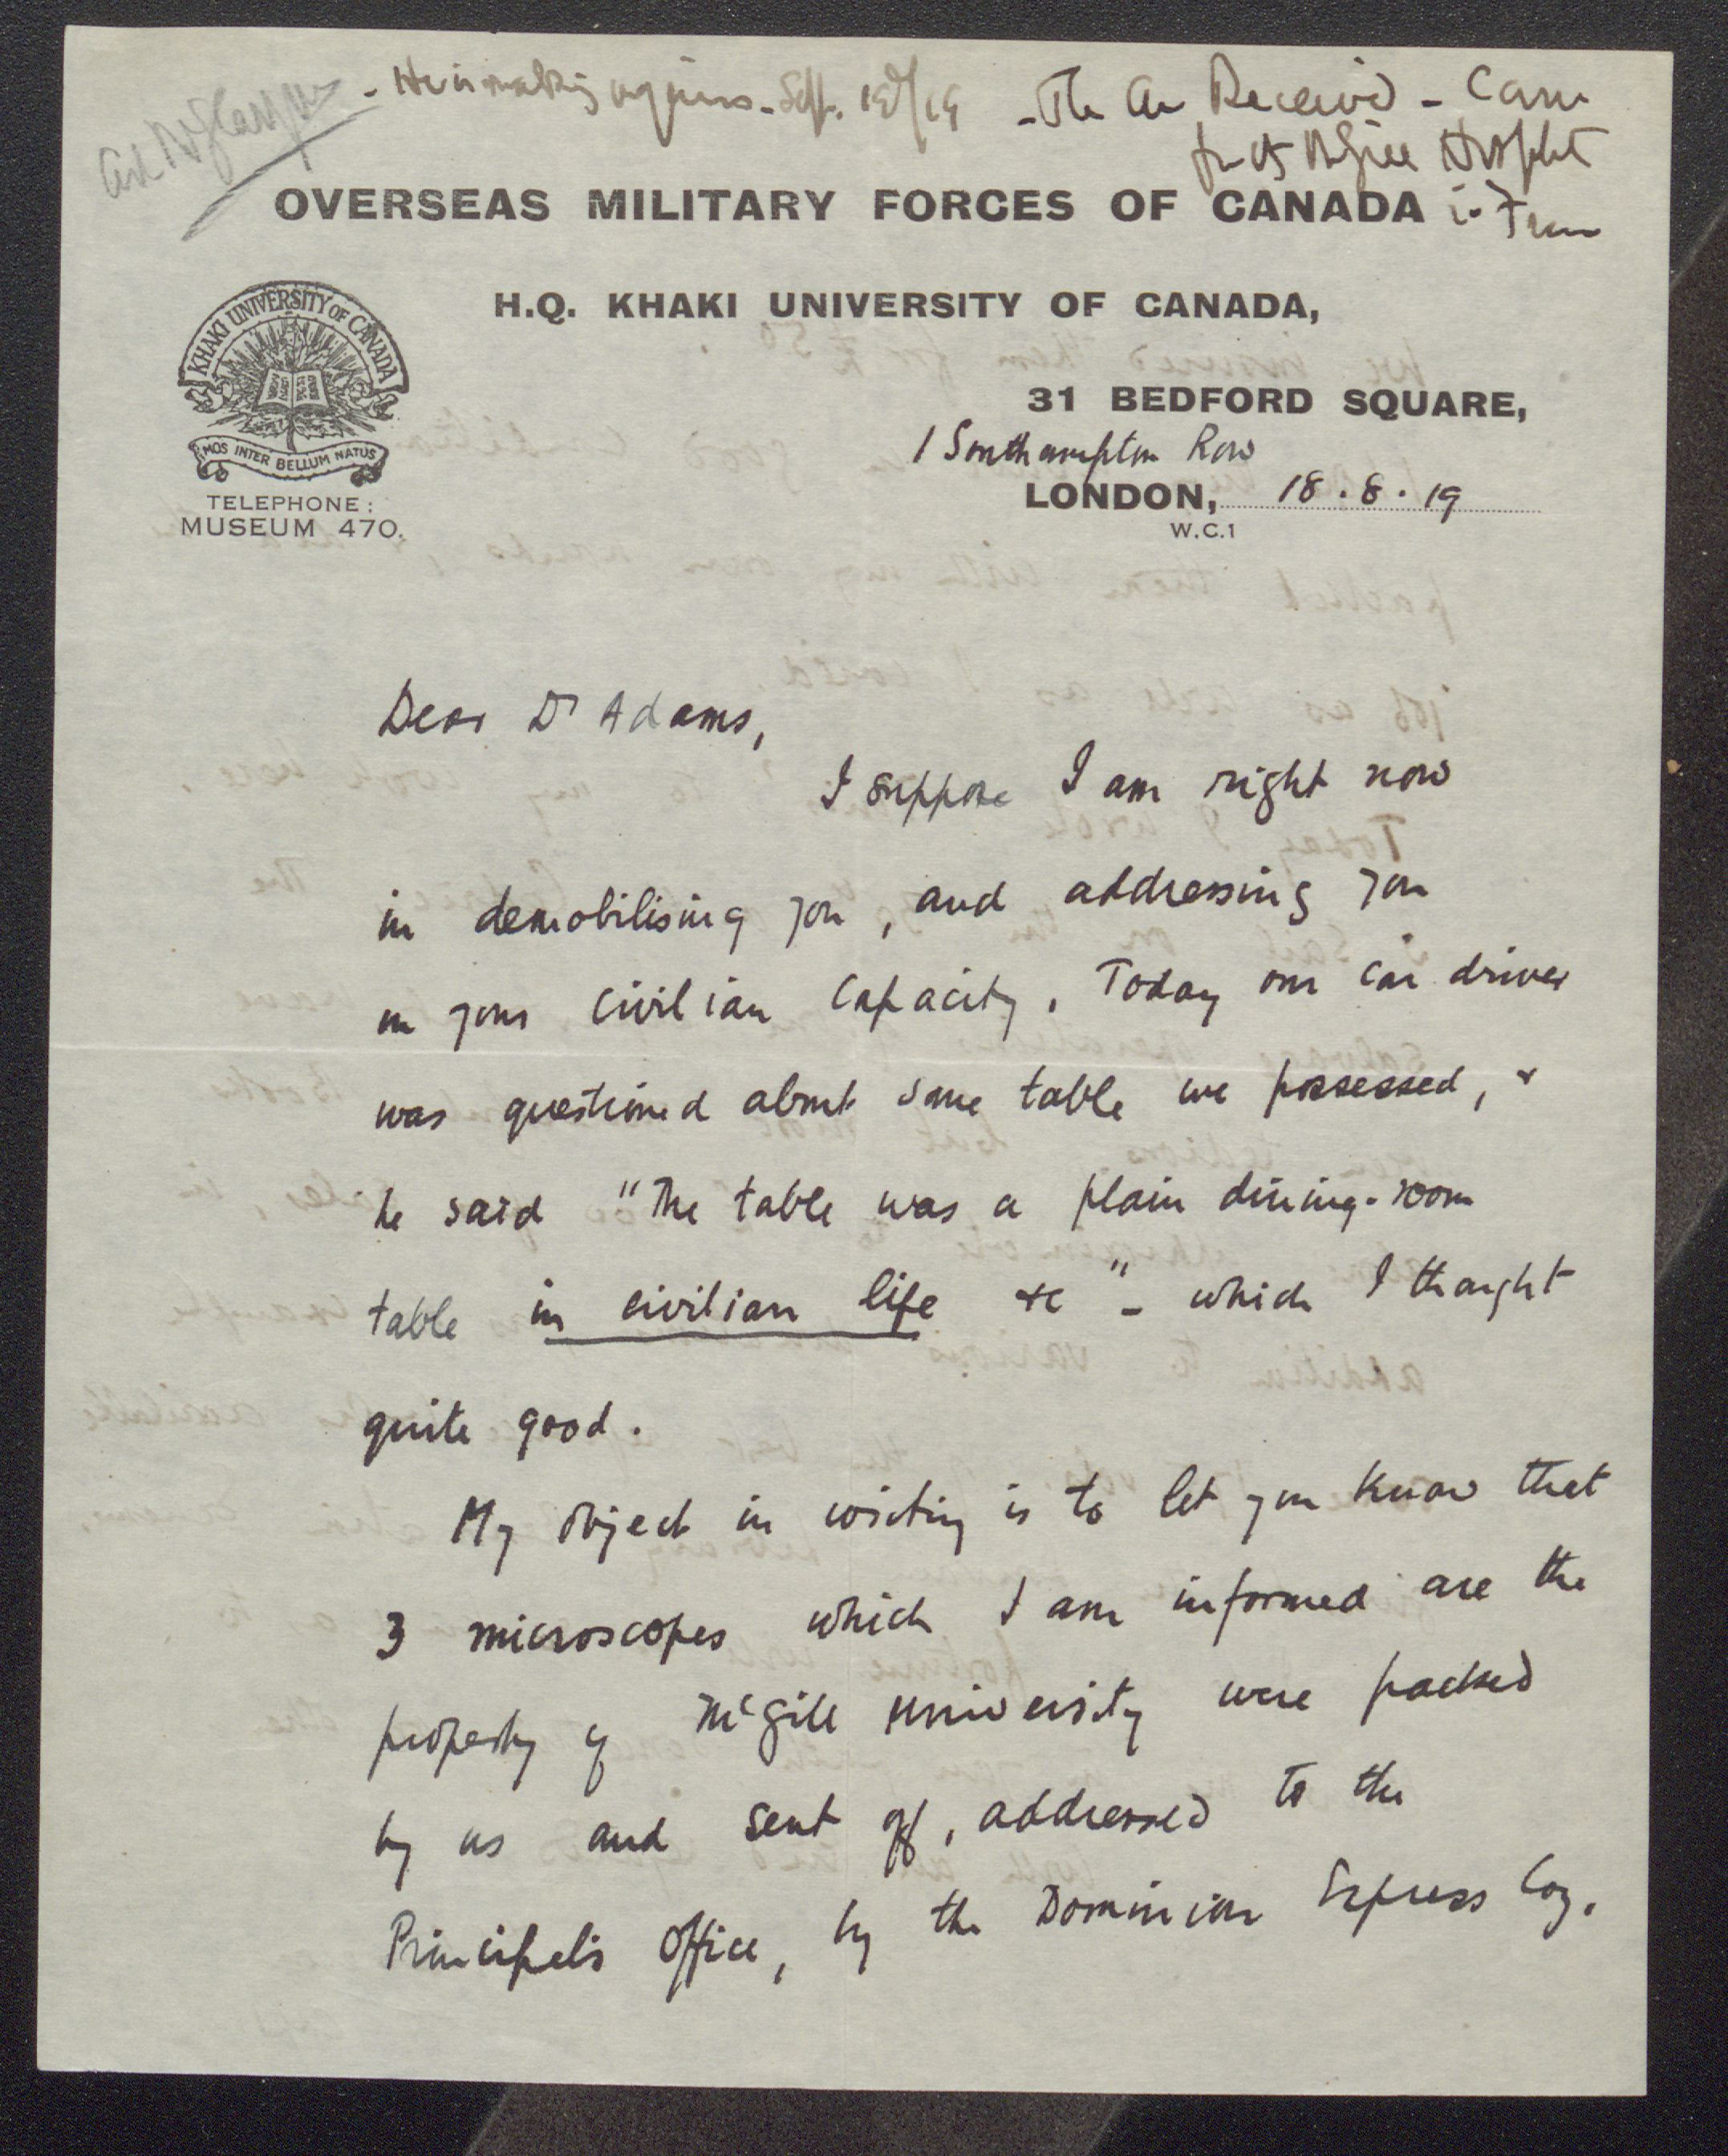 Ask Mr Glassco - He is making inquiries - Sept. 19/19 - The are Received - Came
from McGill Hospital
in France
OVERSEAS MILITARY FORCES OF CANADA
H.Q. KHAKI UNIVERSITY OF CANADA,
KHAKI UNIVERSITY OF CANADA
MOS INTER BELLUM NATUS
TELEPHONE:
MUSEUM 470.
31 BEDFORD SQUARE,
1 Southampton Row
LONDON, 18.8.19
W.C.1
Dear Dr Adams,
I suppose I am right now
in demobilising you, and addressing you
in your civilian capacity. Today our car driver
was questioned about some table we possessed, &
he said "The table was a plain dining-room
table in civilian life &c" - which I thought
quite good.
My object in writing is to let you know that
3 microscopes which I am informed are the
property of McGill University were packed
by us and sent off, addressed to the
Principal's Office, by the Dominion Express Coy.